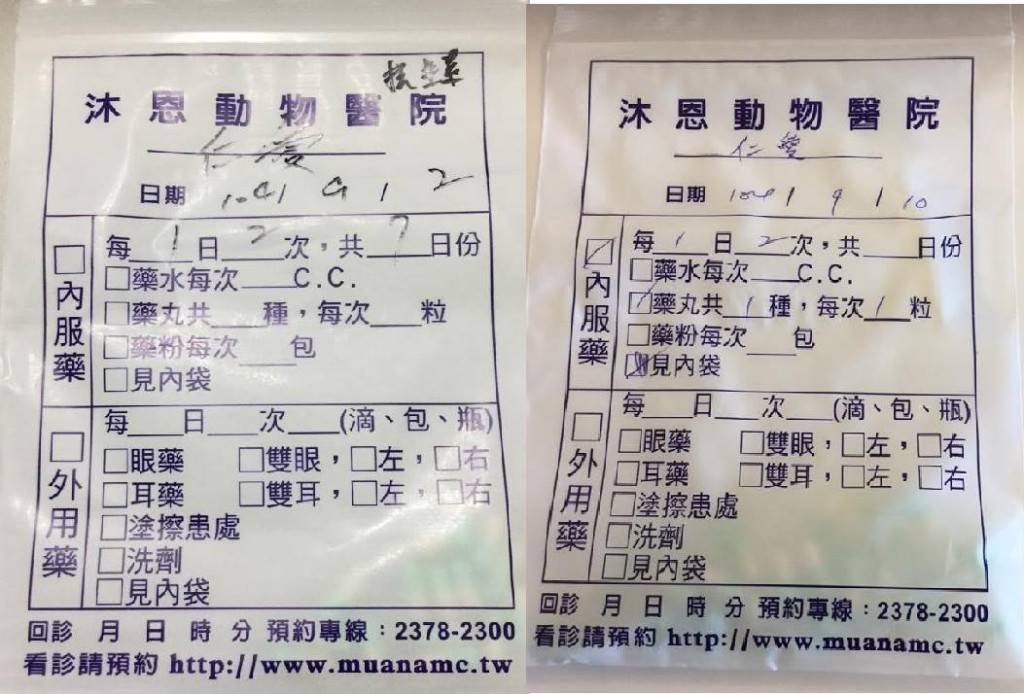 沐恩動物醫院
仁愛
日期 1041 9 1 2
每 1 日 2 次，共 7 日份
內服藥
□藥水每次 C.C.
□藥丸共 種，每次 粒
□藥粉每次 包
□見內袋
每 日 次 (滴、包、瓶)
外用藥
□眼藥 □雙眼，□左，□右
□耳藥 □雙耳，□左，□右
□塗擦患處
□洗劑
□見內袋
回診 月 日 時 分 預約專線：2378-2300
看診請預約 http://www.muanamc.tw
沐恩動物醫院
仁愛
日期 1041 9 1 10
每 1 日 2 次，共 日份
內服藥
□藥水每次 C.C.
☑藥丸共 1 種，每次 1 粒
□藥粉每次 包
見內袋
每 日 次 (滴、包、瓶)
外用藥
□眼藥 □雙眼，□左，□右
□耳藥 □雙耳，□左，□右
□塗擦患處
□洗劑
□見內袋
回診 月 日 時 分 預約專線：2378-2300
看診請預約 http://www.muanamc.tw